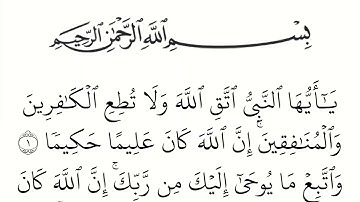 بِسْمِ ٱللَّهِ ٱلرَّحْمَٰنِ ٱلرَّحِيمِ
يَـٰٓأَيُّهَا ٱلنَّبِىُّ ٱتَّقِ ٱللَّهَ وَلَا تُطِعِ ٱلْكَـٰفِرِينَ
وَٱلْمُنَـٰفِقِينَ ۗ إِنَّ ٱللَّهَ كَانَ عَلِيمًا حَكِيمًا ١
وَٱتَّبِعْ مَا يُوحَىٰٓ إِلَيْكَ مِن رَّبِّكَ ۚ إِنَّ ٱللَّهَ كَانَ